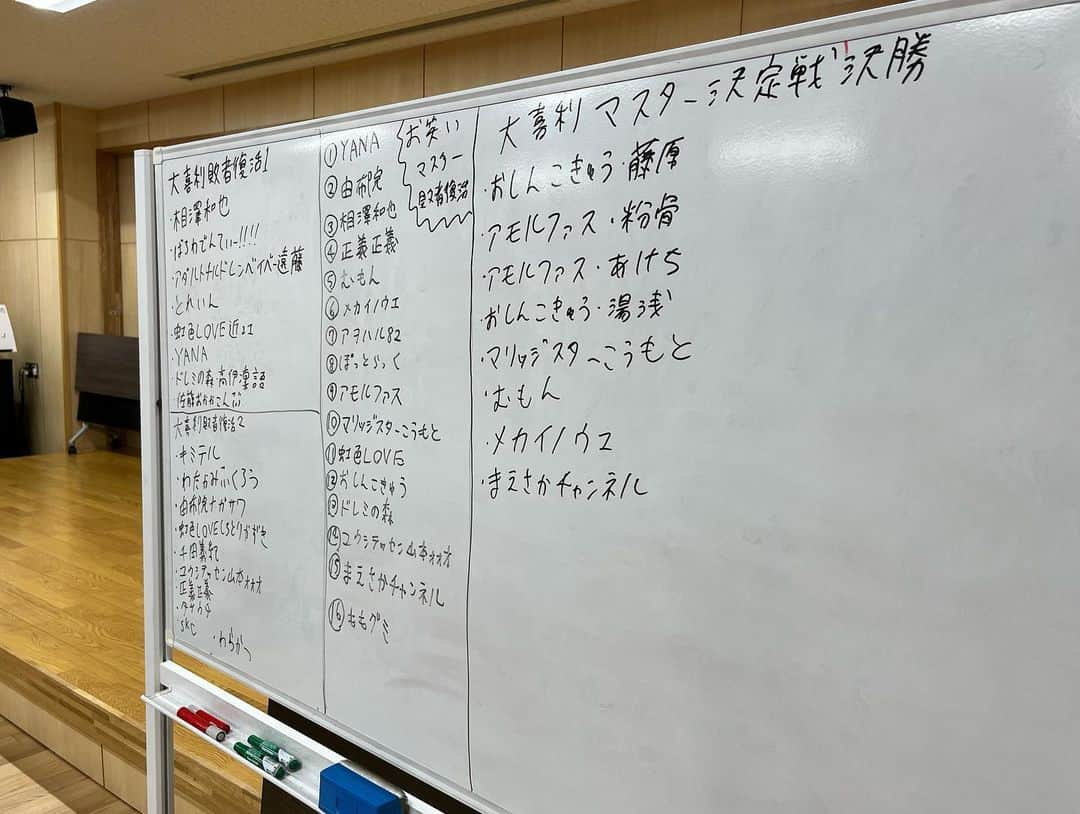 大喜利敗者復活1
・相澤和也
・ぱちわでんてぃー!!!!
・アダルトチルドレンベイベー遠藤
・とれいん
・虹色LOVE近江
・YANA
・ドレミの森高伊凜語
・佐藤おかかこんぶ
大喜利敗者復活2
・キミテル
・わたがみいくろう
・由布院ナガサワ
・虹色LOVEしちとりかずき
・千田義
・ユウシテッセン山本オオオ
・正義正義
・SKC
・わらかつ
お笑い
マスター
敗者復活
①YANA
②由布院
③相澤和也
④正義正義
⑤むもん
⑥メカイノウエ
⑦アヲハル82
⑧ぽっとらっく
⑨アモルファス
⑩マリッジスターこうもと
⑪虹色LOVE
⑫おしんこきゅう
⑬ドレミの森
⑭ユウシテッセン山本オオオ
⑮まえさかチャンネル
⑯ももグミ
大喜利マスター決定戦決勝
・おしんこきゅう・藤原
・アモルファス・粉骨
・アモルファス・あけち
・おしんこきゅう・湯浅
・マリッジスターこうもと
・むもん
・メカイノウエ
・まえさかチャンネル